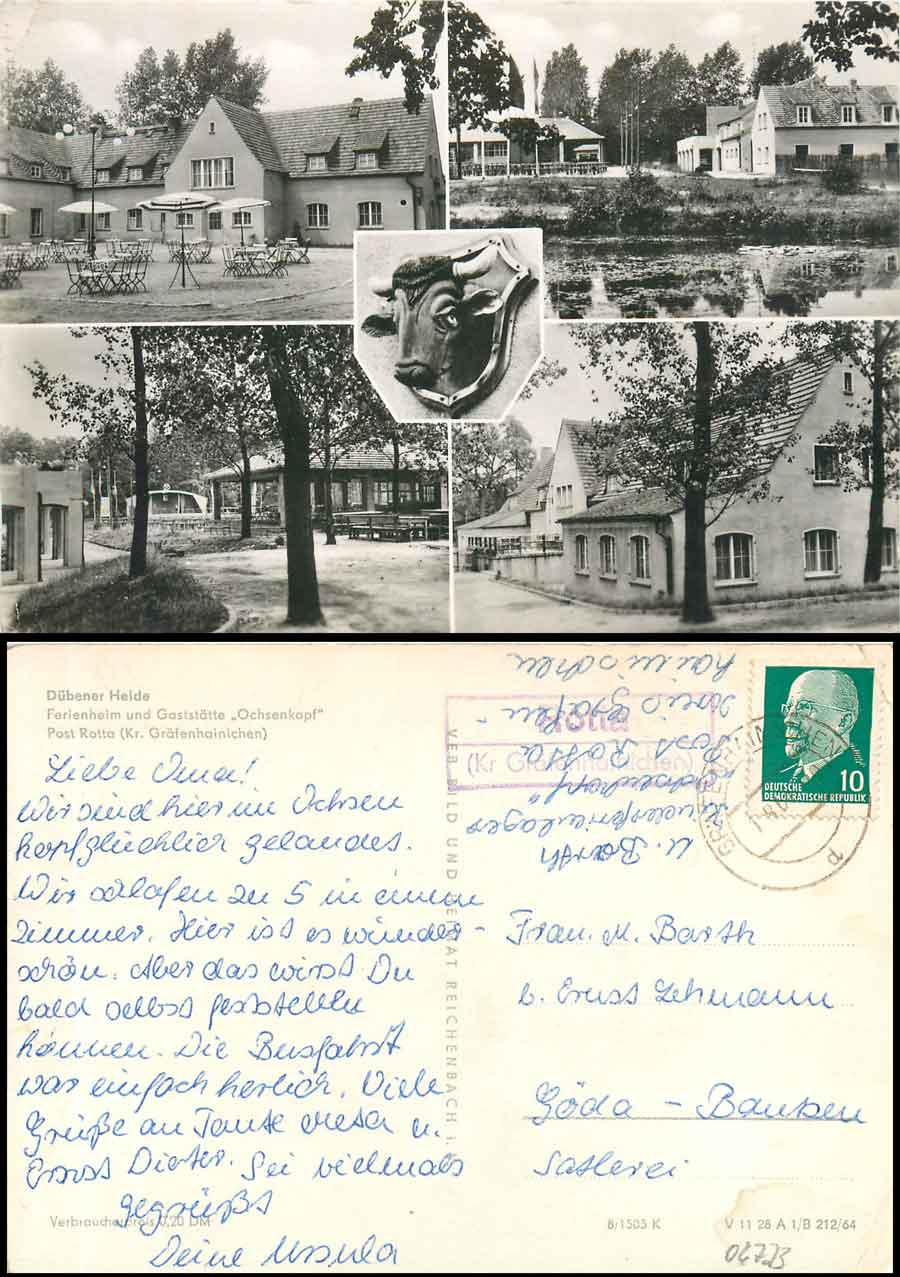 Dübener Heide
Ferienheim und Gaststätte „Ochsenkopf"
Post Rotta (Kr. Gräfenhainichen)
Liebe Oma!
Wir sind hier im Ochsen
kopf glücklich gelandet.
Wir schlafen zu 5 in einem
Zimmer. Hier ist es wunder-
schön. Aber das wirst Du
bald selbst feststellen
können. Die Busfahrt
war einfach herlich. Viele
Grüße an Tante u.
Ernst Dieter. Sei vielmals
gegrüßt
Deine Ursula
Verbraucherpreis 0,20 DM
VEB BILD UND HEIMAT REICHENBACH i.
Rotta
(Kr Gräfenhainichen)
U. Barth
Kinderferienlager
„Ochsenkopf"
Post Rotta
Kreis Gräfen-
hainichen
DEUTSCHE
DEMOKRATISCHE REPUBLIK
10
Frau. M. Barth
b. Ernst Lehmann
Göda – Bautzen
Satlerei
8/1503 K
V 11 28 A 1/B 212/64